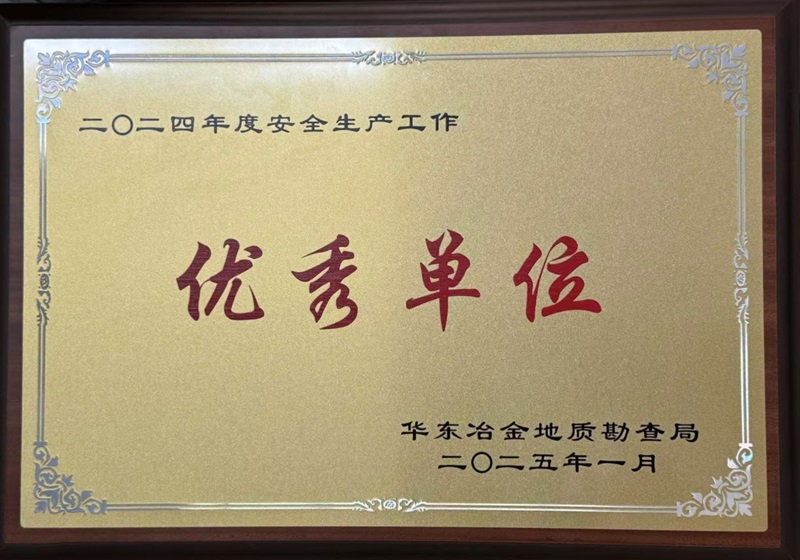 二〇二四年度安全生产工作
优秀单位
华东冶金地质勘查局
二〇二五年一月